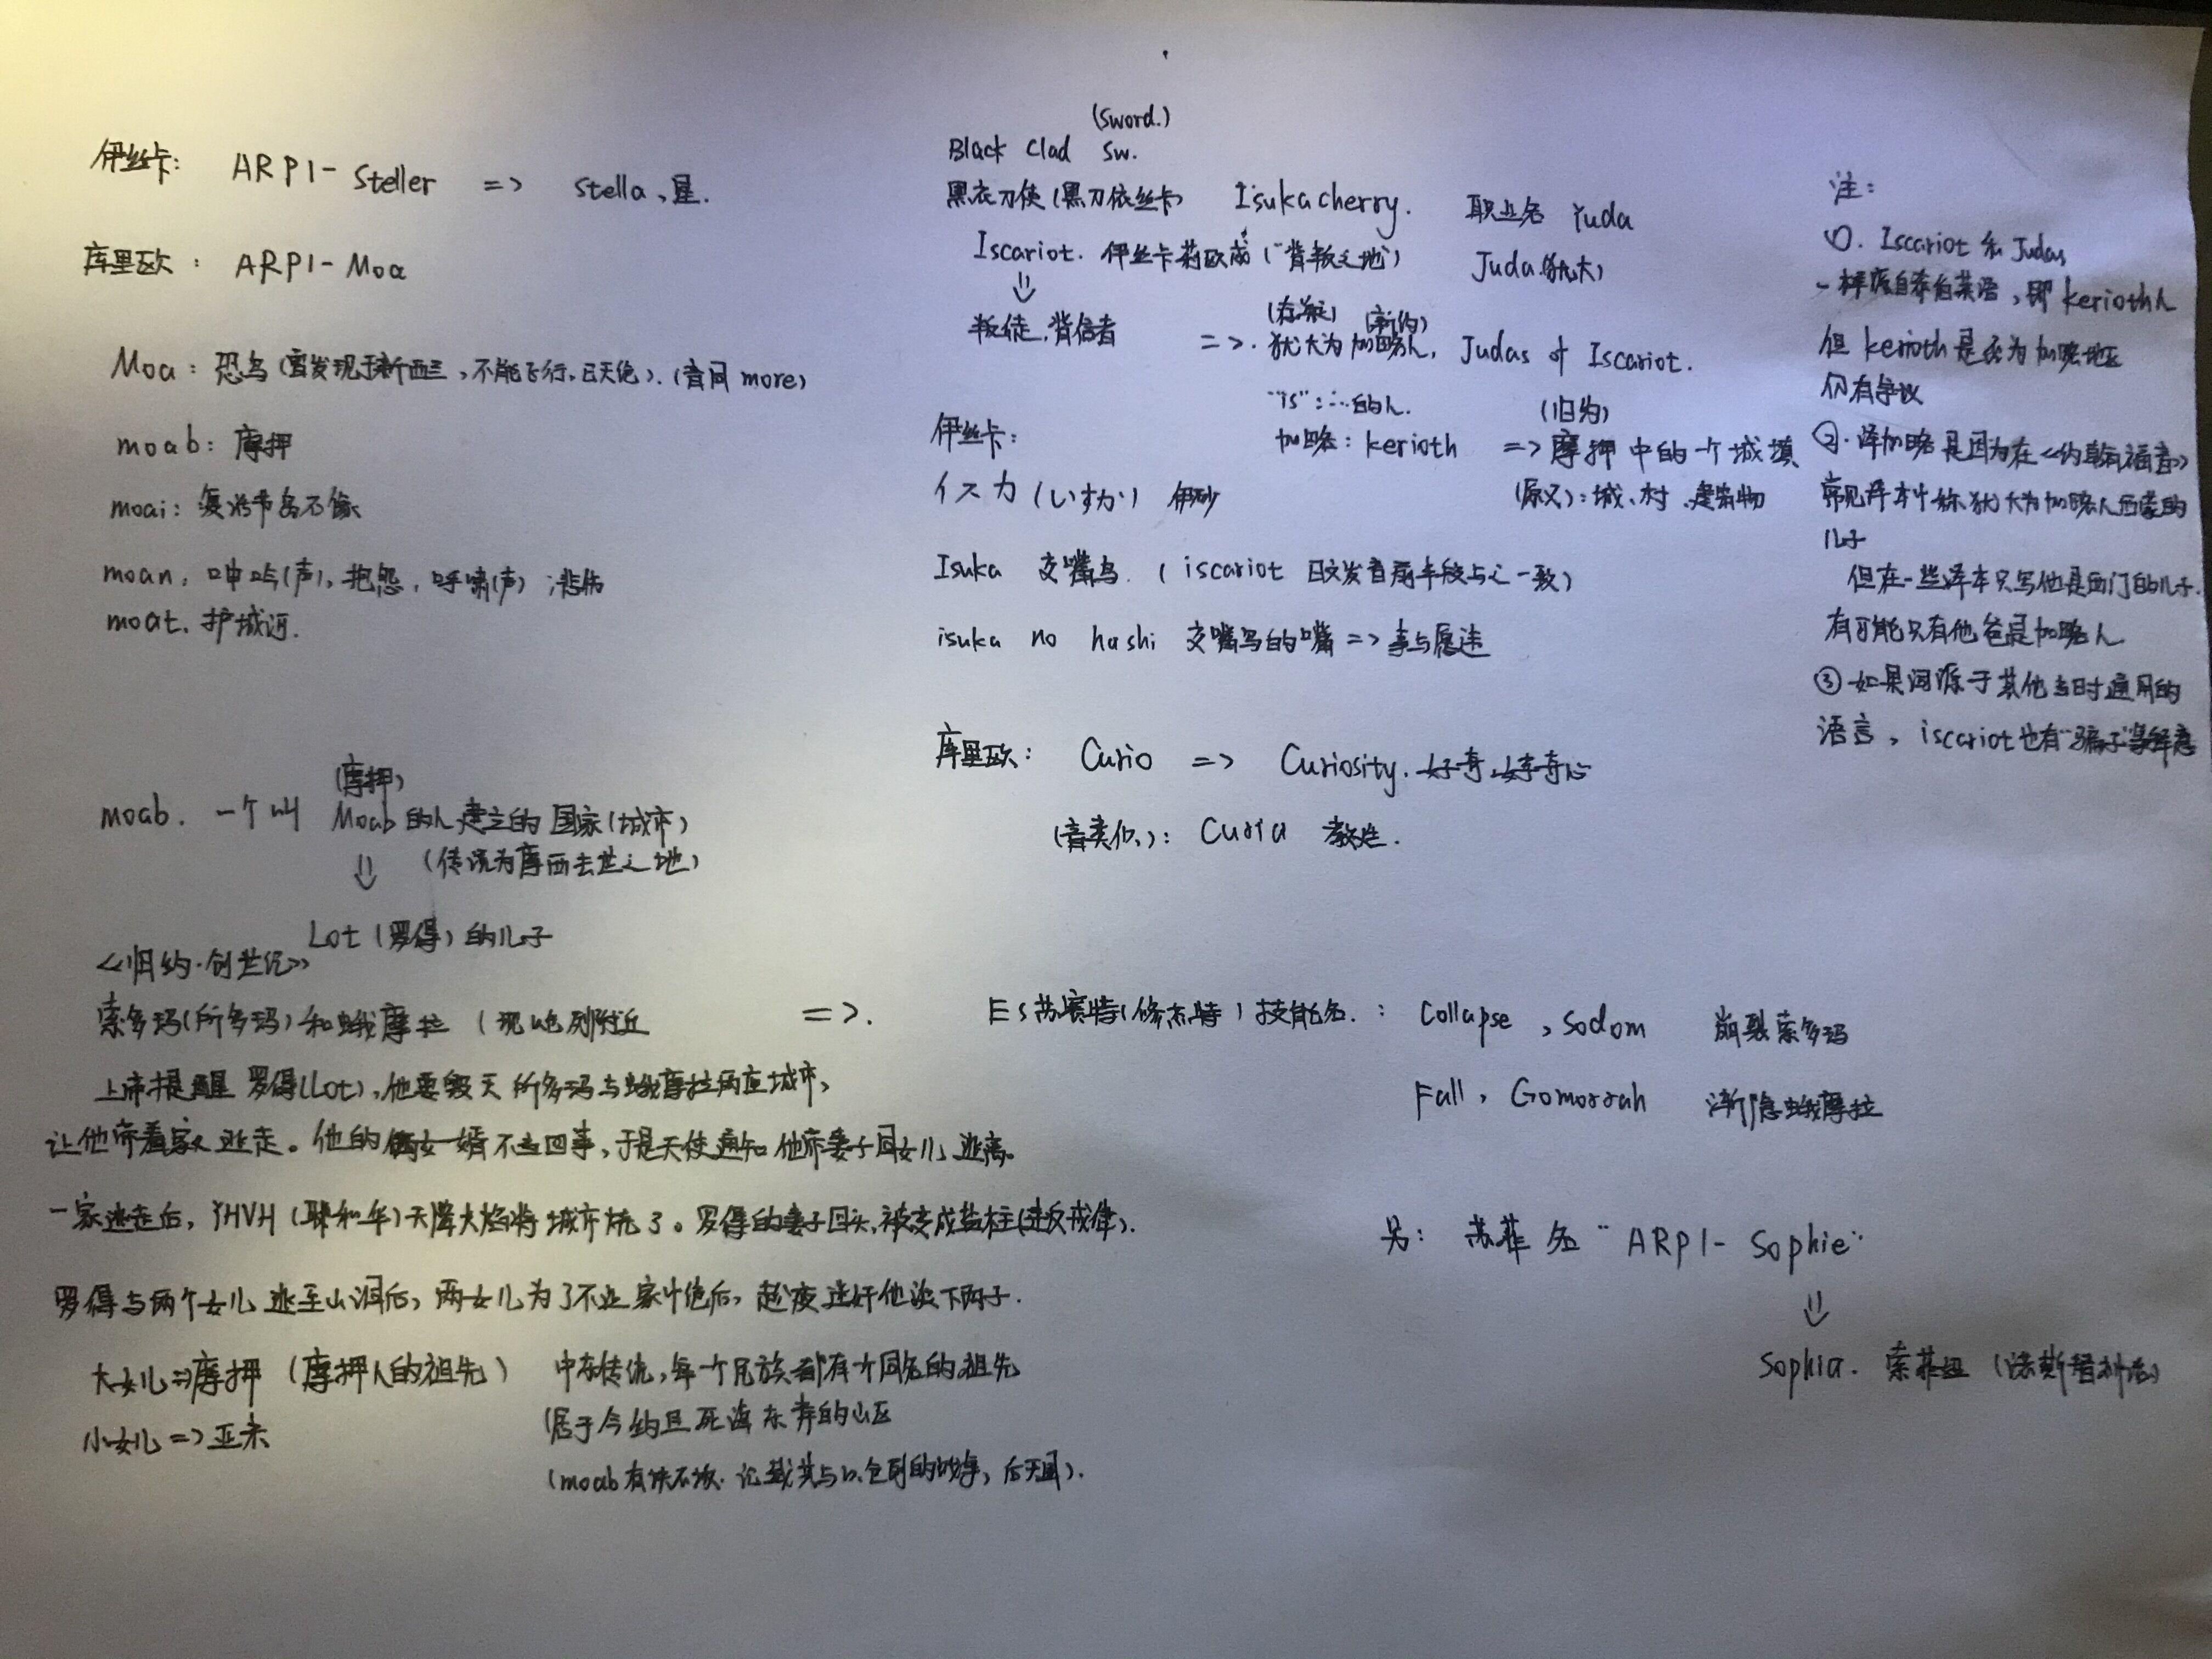 伊丝卡: ARP1- Steller => stella、星.
库里欧: ARP1- Moa
Moa: 恐鸟 (曾发现于新西兰, 不能飞行, 已灭绝). (音同 more)
moab: 摩押
moai: 复活节岛石像
moan: 呻吟(声), 抱怨, 呼啸(声); 悲伤
moat. 护城河.
(摩押)
moab. 一个叫 Moab 的人建立的国家(城市)
⇓ (传说为摩西去世之地)
Lot (罗得) 的儿子
《旧约·创世纪》
索多玛(所多玛) 和蛾摩拉 (现以色列附近 =>.
上帝提醒 罗得(Lot), 他要毁灭 所多玛与蛾摩拉两座城市,
让他带着家人逃走。他的俩女婿不当回事, 于是天使通知他带妻子同女儿逃离。
一家逃走后, YHVH (耶和华) 天降大焰将城市烧了。罗得的妻子回头, 被变成盐柱(违反戒律).
罗得与两个女儿逃至山洞后, 两女儿为了不让家中绝后, 趁夜迷奸他诞下两子.
大女儿=>摩押 (摩押人的祖先) 中东传统, 每一个民族都有个同名的祖先
小女儿 => 亚扪
(居于今约旦死海东岸的山区
(moab有块石块. 记载其与以色列的战争, 后灭国).
(sword.)
Black Clad Sw.
黑衣刀使 (黑刀依丝卡) Isukacherry. 职业名 Yuda
Iscariot. 伊丝卡莉欧 ("背叛之地") Juda (犹大)
⇓
叛徒, 背信者
(新约)
=>. 犹大为加略人, Judas of Iscariot.
"is": …的人. (旧约)
加略: kerioth => 摩押中的一个城镇
(原义): 城、村、建筑物
伊丝卡:
イスカ (いすか) 伊砂
Isuka 交嘴鸟. (iscariot 日文发音前半段与之一致)
isuka no hashi 交嘴鸟的嘴 => 事与愿违
库里欧: Curio => Curiosity. 好奇, 好奇心
(音类似): Curia 教廷.
Es 苏赛特(修杰特) 技能名. : Collapse, Sodom 崩裂索多玛
Fall, Gomorrah 渐隐蛾摩拉
另: 苏菲名 "ARP1- Sophie"
⇓
Sophia. 索菲娅 (诺斯替神话)
注:
①. Iscariot 和 Judas
一样源自希伯莱语, 即 kerioth人
但 kerioth 是否为加略地区
仍有争议
②. 译加略是因为在《约翰福音》
常见译本中称犹大为加略人西蒙的
儿子
但在一些译本只写他是西门的儿子.
有可能只有他爸是加略人
③ 如果词源于其他当时通用的
语言, iscariot也有"骗子"等解意